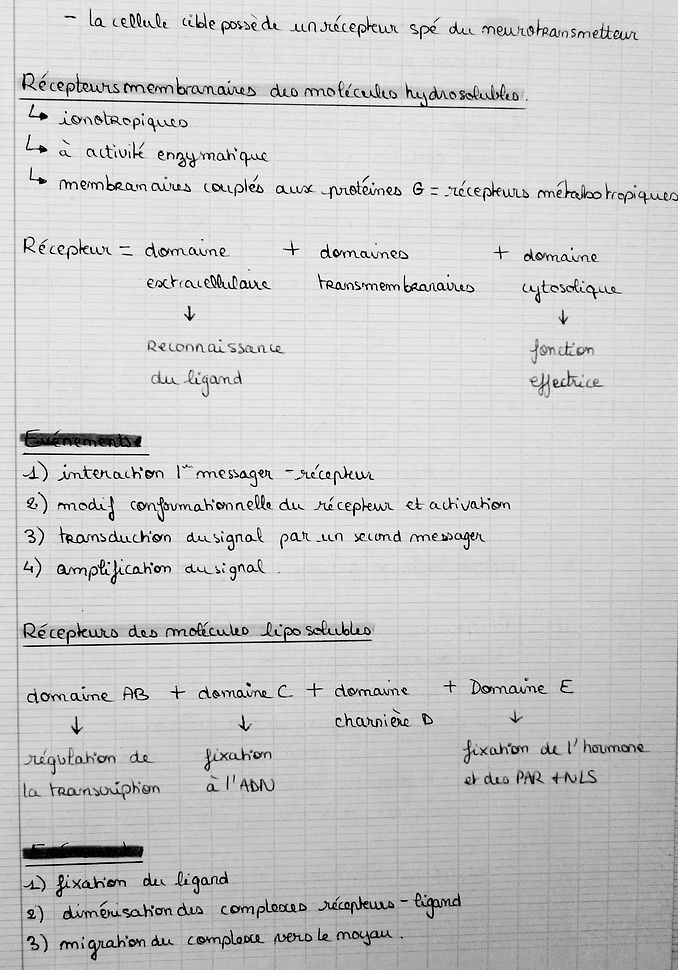 - la cellule cible possède un récepteur spé du neurotransmetteur
Récepteurs membranaires des molécules hydrosolubles.
↳ ionotropiques
↳ à activité enzymatique
↳ membranaires couplés aux protéines G = récepteurs métabotropiques
Récepteur = domaine + domaines + domaine
extracellulaire transmembranaires cytosolique
↓ ↓
Reconnaissance fonction
du ligand effectrice
Evénements
1) interaction 1er messager - récepteur
2) modif conformationnelle du récepteur et activation
3) transduction du signal par un second messager
4) amplification du signal.
Récepteurs des molécules liposolubles
domaine AB + domaine C + domaine + Domaine E
↓ ↓ charnière D ↓
régulation de fixation fixation de l'hormone
la transcription à l'ADN et des PAR + NLS
1) fixation du ligand
2) dimérisation des complexes récepteurs - ligand
3) migration du complexe vers le noyau.